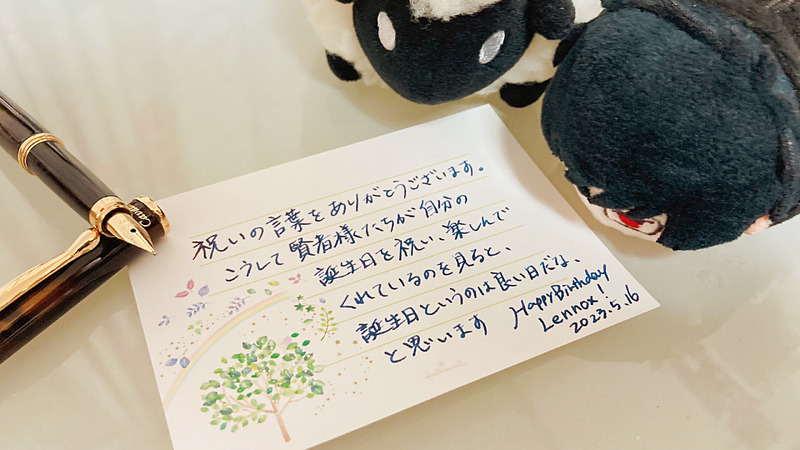 祝いの言葉をありがとうございます。
こうして賢者様たちが自分の
誕生日を祝い、楽しんで
くれているのを見ると、
誕生日というのは良い日だな、
と思います
Happy Birthday
Lennox!
2023.5.16